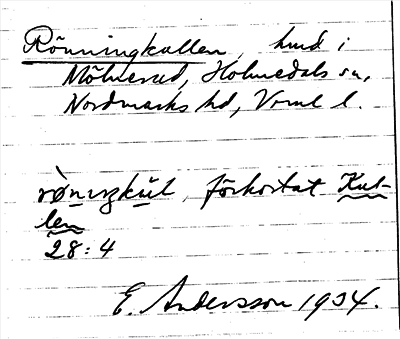 Rönningkullen, hmd i
Mölnerud, Holmedals sn,
Nordmarks hd, Vrml l.
rø̀niŋkul, förkortat Kul-
len
28:4
E. Andersson 1934.